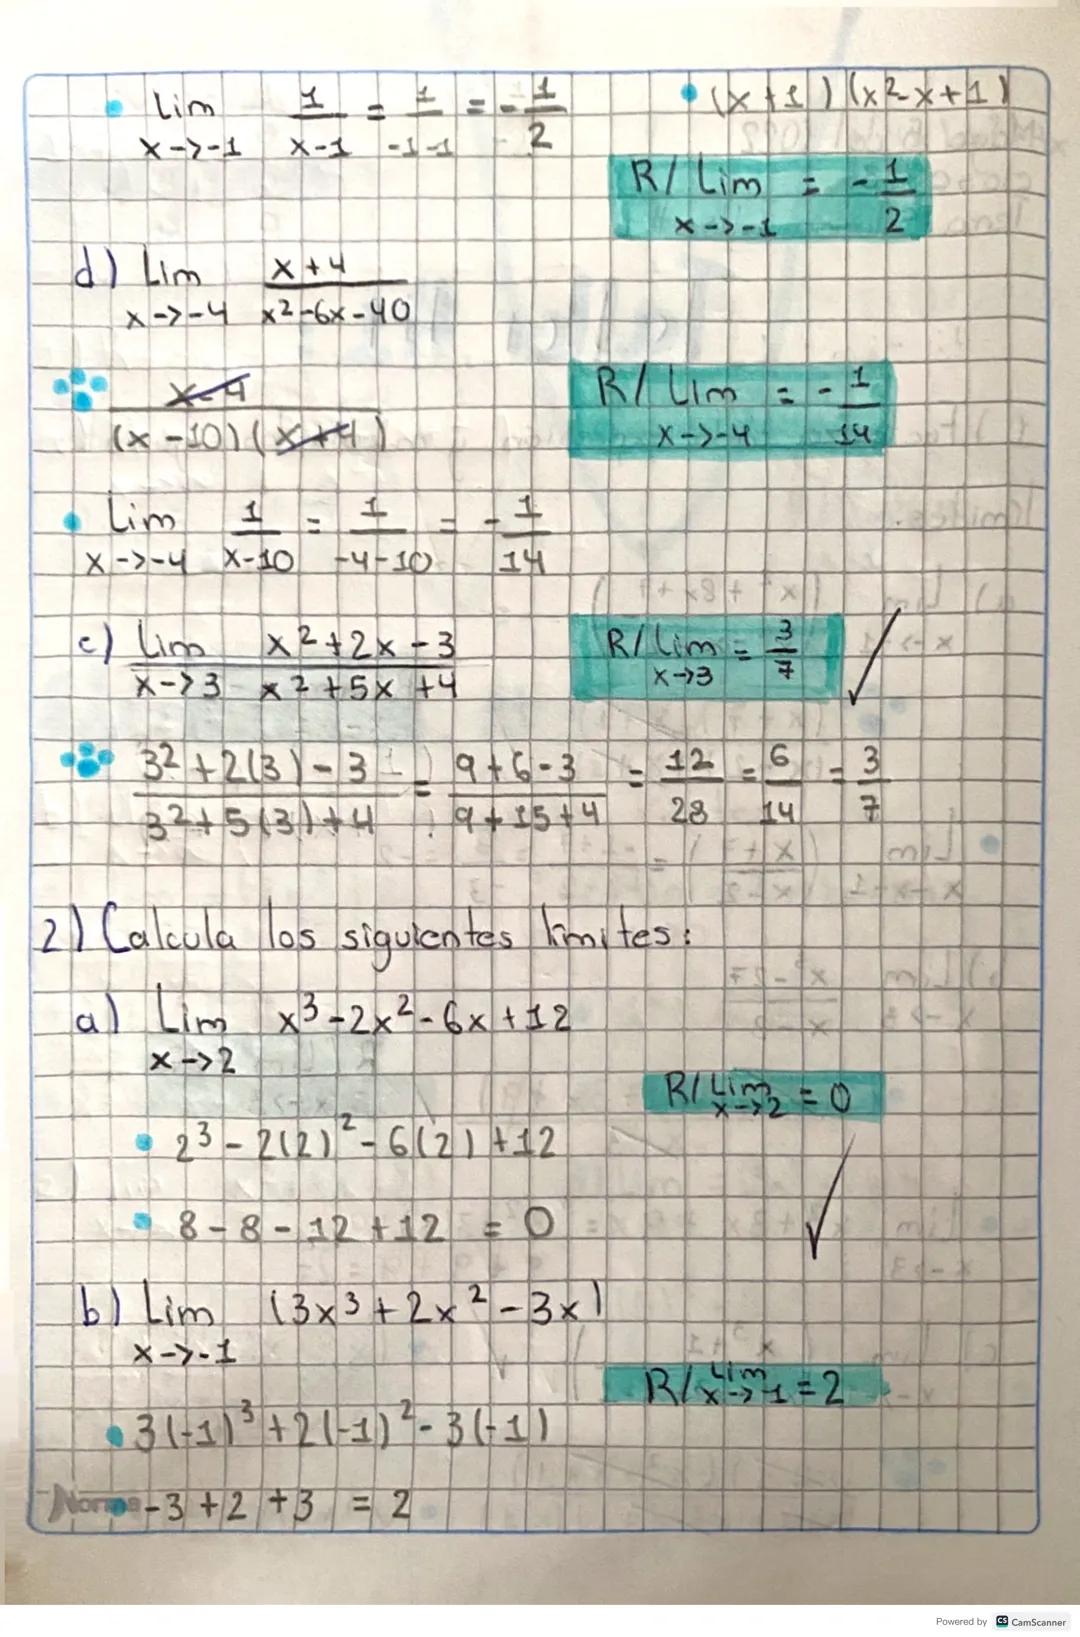 • Lim 1/x-1 = 1/-1-1 = -1/2
x->-1
• (x+1)(x²-x+1)
R/ Lim = -1/2
x->-1
d) Lim x+4/x²-6x-40
x->-4
x-4/(x-10)(x+4)
R/ Lim = -1/14
x->-4
• Lim 1/x-10 = 1/-4-10 = -1/14
x->-4
e) Lim x²+2x-3/x²+5x+4
x->3
R/ Lim = 3/7
x->3
3²+2(3)-3/3²+5(3)+4 = 9+6-3/9+15+4 = 12/28 = 6/14 = 3/7
2) Calcula los siguientes límites:
a) Lim x³-2x²-6x+12
x->2
R/ Lim = 0
x->2
• 2³-2(2)²-6(2)+12
• 8-8-12+12 = 0
b) Lim (3x³+2x²-3x)
x->-1
R/ Lim = 2
x->-1
• 3(-1)³+2(-1)²-3(-1)
Norma
• -3+2+3 = 2
Powered by CS CamScanner